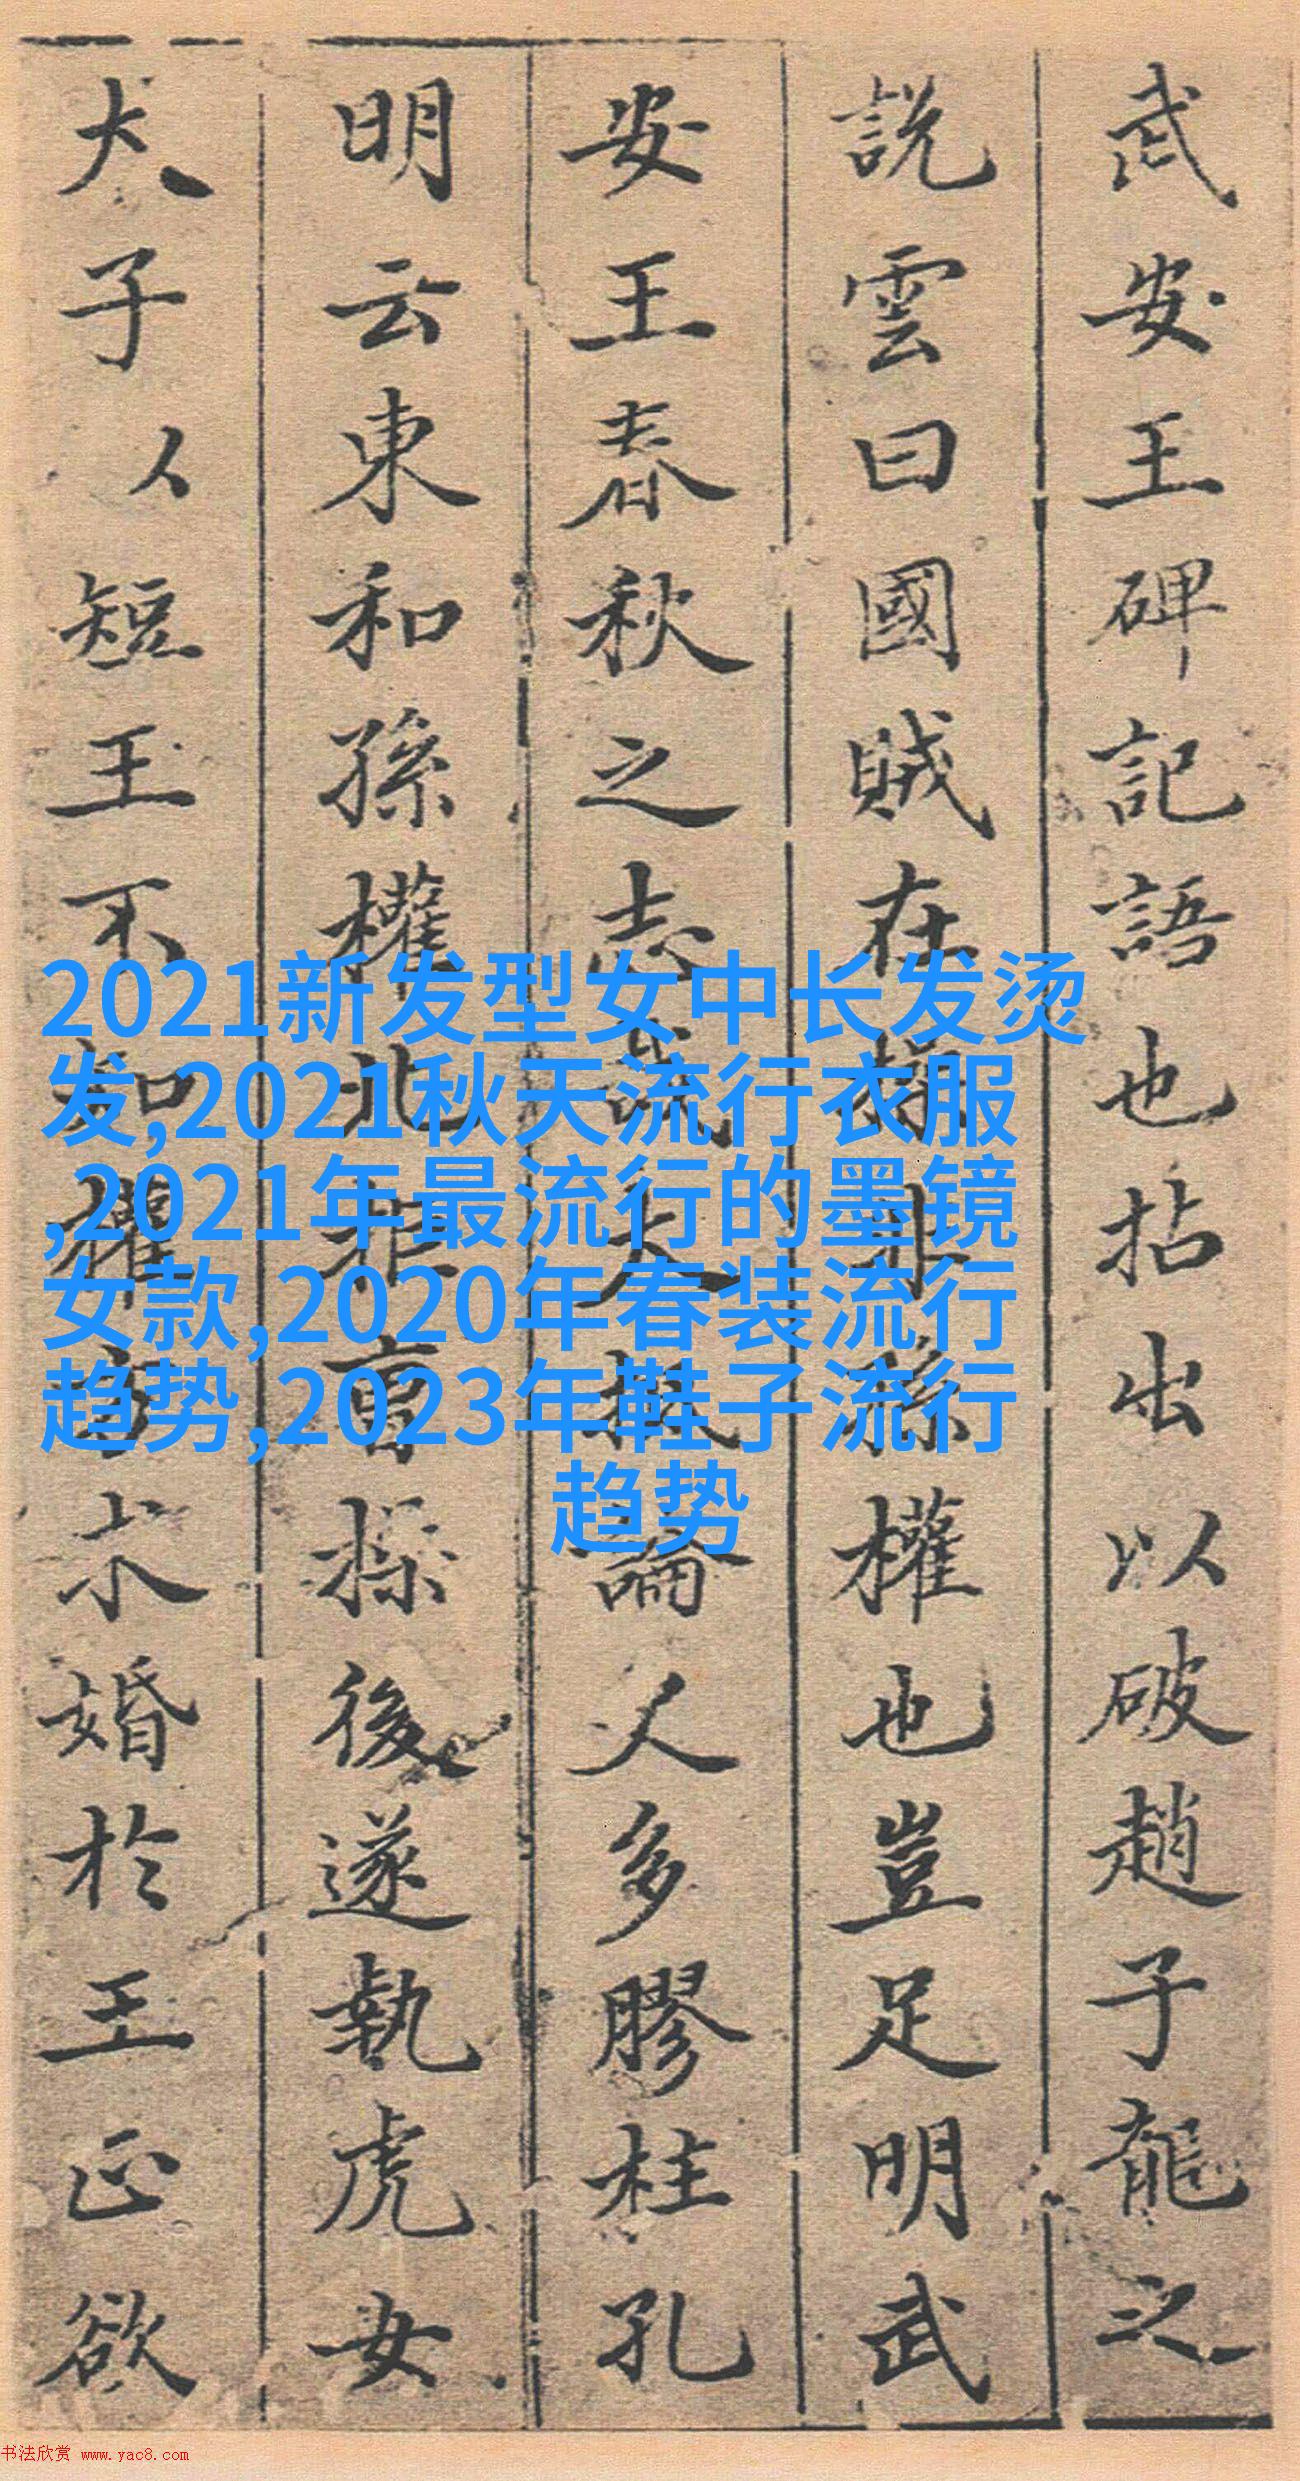 武安王碑記語也拈出以破趙子龍之
說雲曰國賊在操非孫權也豈足明武
安王春秋之志哉大抵論人多膠柱孔
明云東和孫權北拒曹操後遂執虎女
犬子短王不知權求婚於王正欲
2021新发型女中长发烫
发,2021秋天流行衣服
,2021年最流行的墨镜
女款,2020年春装流行
趋势,2023年鞋子流行
趋势
书法欣赏 www.yac8.com